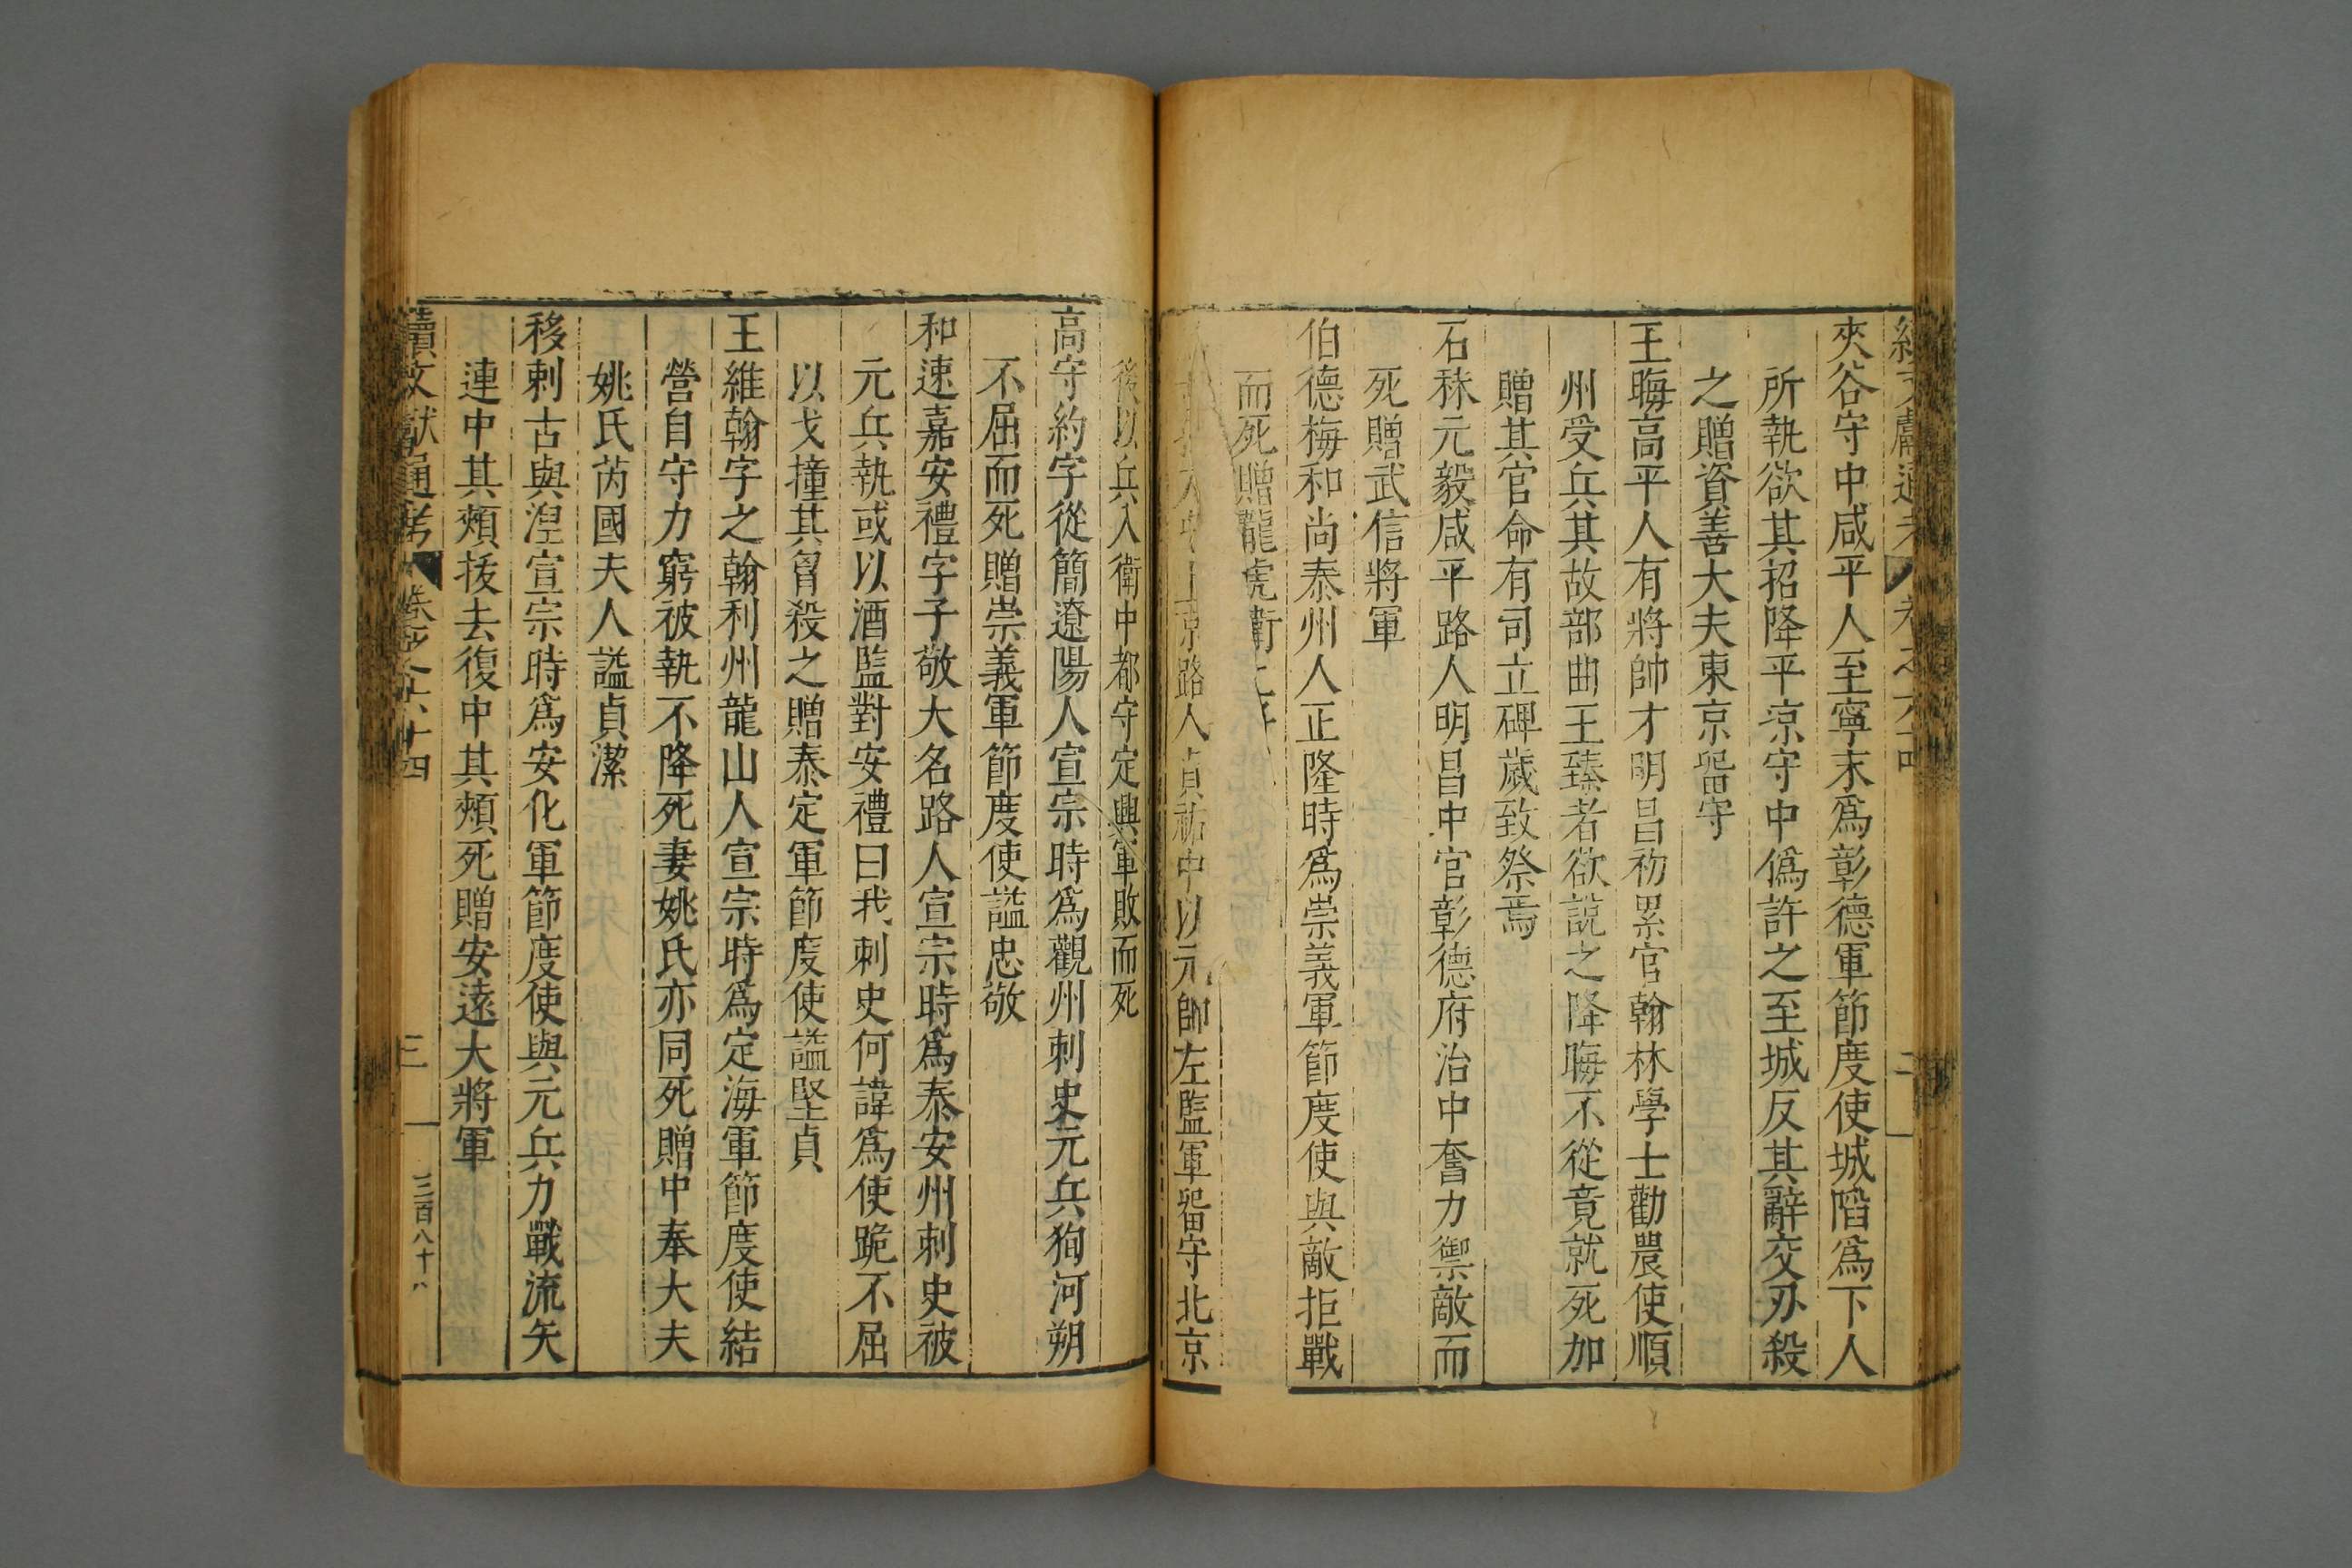 夾谷守中咸平人至寧末爲彰德軍節度使城陷爲下人
所執欲其招降平涼守中僞許之至城反其辭交刃殺
之贈資善大夫東京畱守
王晦高平人有將帥才明昌初累官翰林學士勸農使順
州受兵其故部曲王臻者欲說之降晦不從竟就死加
贈其官命有司立碑歲致祭焉
石秣元毅咸平路人明昌中官彰德府治中奮力禦敵而
死贈武信將軍
伯德梅和尚泰州人正隆時爲崇義軍節度使與敵拒戰
而死贈龍虎衛上
京路人貞祐中以元帥左監軍畱守北京
後以兵入衛中都守定興軍敗而死
高守約字從簡遼陽人宣宗時爲觀州刺史元兵狥河朔
不屈而死贈崇義軍節度使諡忠敬
和速嘉安禮字子敬大名路人宣宗時爲泰安州刺史被
元兵執或以酒監對安禮曰我刺史何諱爲使跪不屈
以戈撞其胷殺之贈泰定軍節度使諡堅貞
王維翰字之翰利州龍山人宣宗時爲定海軍節度使結
營自守力窮被執不降死妻姚氏亦同死贈中奉大夫
姚氏芮國夫人諡貞潔
移剌古與湼宣宗時爲安化軍節度使與元兵力戰流矢
連中其頰拔去復中其頰死贈安遠大將軍
續文獻通考 卷之六十四 三 三百八十八